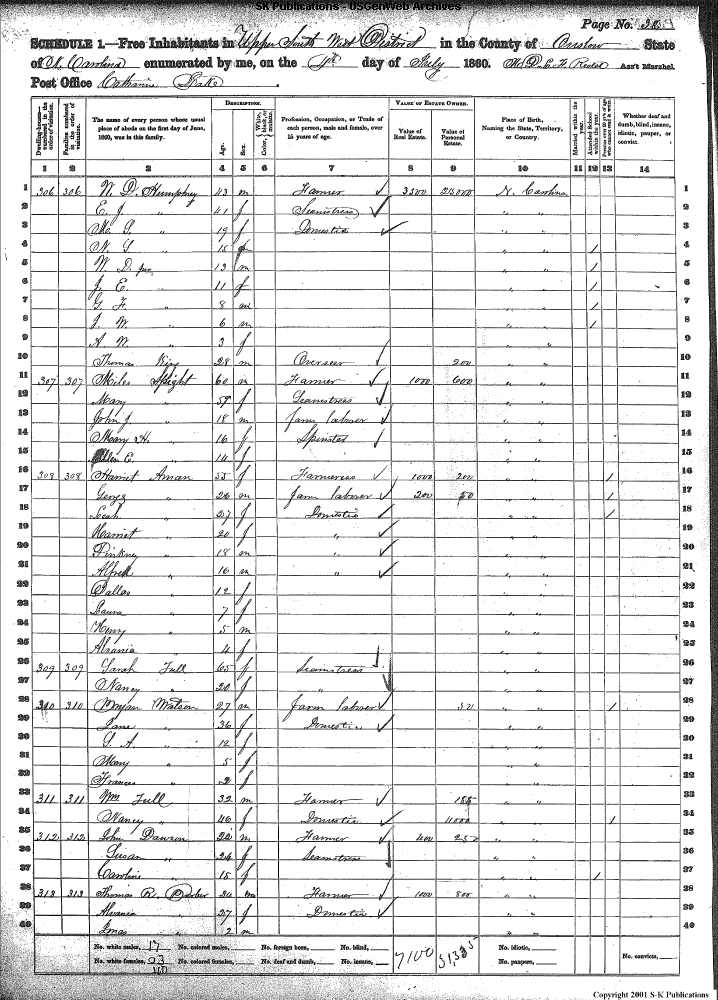 SK Publications - USGenWeb Archives
Page No. 38
SCHEDULE 1.—Free Inhabitants in Upper South West District in the County of Onslow State
of N. Carolina enumerated by me, on the day of July 1860. Ass't Marshal.
Post Office Catharine Lake
Dwelling-houses—numbered in the order of visitation.
Families numbered in the order of visitation.
The name of every person whose usual place of abode on the first day of June, 1860, was in this family.
DESCRIPTION.
Age.
Sex.
Color, White, black, or mulatto.
Profession, Occupation, or Trade of each person, male and female, over 15 years of age.
VALUE OF ESTATE OWNED.
Value of Real Estate.
Value of Personal Estate.
Place of Birth, Naming the State, Territory, or Country.
Married within the year.
Attended School within the year.
Whether deaf and dumb, blind, insane, idiotic, pauper, or convict.
1 2 3 4 5 6 7 8 9 10 11 12 13 14
1 306 306 W. D. Humphrey 43 m Farmer 3500 N. Carolina 1
2 E. J. " 41 f Seamstress " " 2
3 " 19 f Domestic " " 3
4 " 15 f " " / 4
5 W. D. jun 13 m " " / 5
6 J. E. " 11 f " " / 6
7 G. F. " 8 m " " / 7
8 J. W. " 6 m " " / 8
9 A. W. " 3 f " " 9
10 Thomas King 28 m Overseer 200 " " 10
11 307 307 Miles Speight 60 m Farmer 1000 600 " " 11
12 Mary " f Seamstress " " 12
13 John J. " 18 m farm laborer " " 13
14 Mary H. " 16 f Spinster " " 14
15 Ellen E. " 14 f " " 15
16 308 308 Harriet Aman 55 f Farmeress 1000 200 " " / 16
17 George " 26 m farm laborer 200 50 " " / 17
18 Leah " 27 f Domestic " " / 18
19 Harriet " 20 f " " " 19
20 Pinkney " 18 m " " " 20
21 Alfred " 16 m " " " 21
22 Dallas " 12 f " " 22
23 Laura " 7 f " " 23
24 Henry " 5 m " " 24
25 Alvania " 4 f " " 25
26 309 309 Sarah 65 f Seamstress " " 26
27 Nancy " 20 f " " " 27
28 310 310 Bryan Watson 27 m farm laborer 50 " " / 28
29 Jane " 36 f Domestic " " 29
30 " 12 f " " 30
31 Mary " 5 f " " 31
32 Frances " 2 f " " 32
33 311 311 Wm 32 m Farmer " " 33
34 Nancy " 46 f Domestic " " / 34
35 312 312 John Dawson 22 m Farmer 400 250 " " 35
36 Susan " 24 f Seamstress " " 36
37 Caroline " 15 f " " / 37
38 313 313 Thomas R. 34 m Farmer 1000 800 " " 38
39 Alvania " 27 f Domestic " " 39
40 Jonas " 2 m " " 40
No. white males, 17 No. colored males, No. foreign born, No. blind, 7100 51,325 No. idiotic,
No. white females, 23 No. colored females, No. deaf and dumb, No. insane, No. paupers, No. convicts,
40
Copyright 2001 S-K Publications